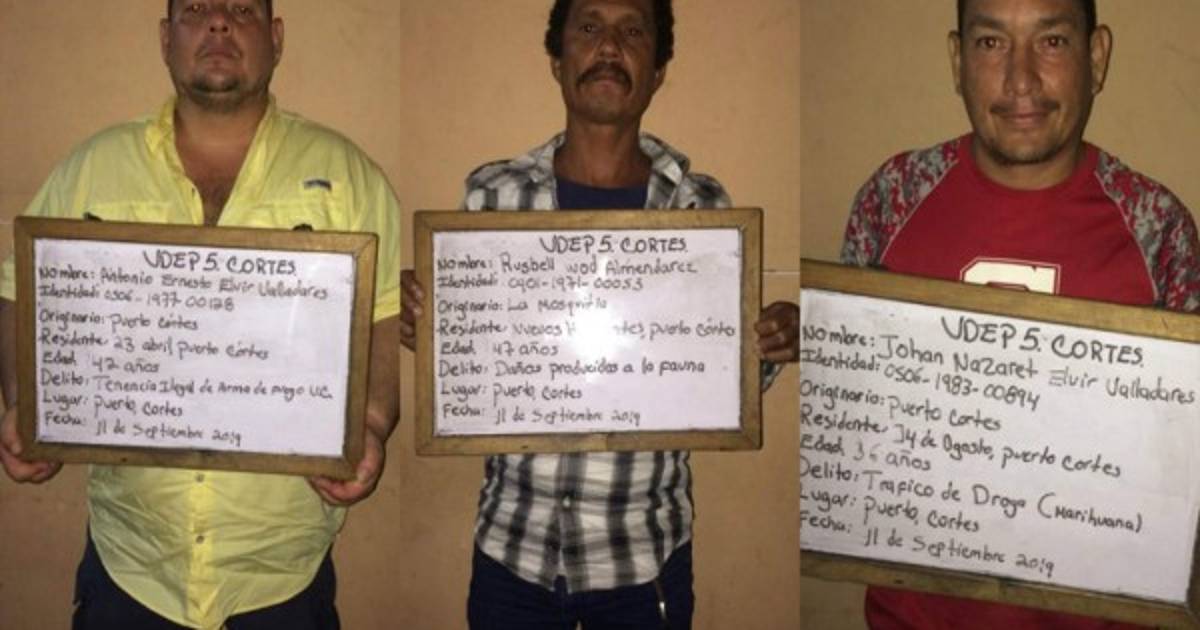 UDEP 5. CORTES.
Nombre: Antonio Ernesto Elvir Valladares
Identidad: 0506-1977-00128
Originario: puerto córtes
Residente: 23 abril, puerto córtes
Edad: 42 años
Delito: Tenencia Ilegal de Arma de fuego U.C.
Lugar: puerto, Cortes
Fecha: 11 de Septiembre 2019
UDEP 5. CORTES.
Nombre: Rusbell wod Almendarez
Identidad: 0901-1971-00053
Originario: La Mosquitia
Residente: Nuevos puerto córtes
Edad: 47 años
Delito: Daños producidos a la fauna
Lugar: puerto, Cortes
Fecha: 11 de Septiembre 2019
UDEP 5. CORTES.
Nombre: Johan Nazaret Elvir Valladares
Identidad: 0506-1983-00894
Originario: puerto Cortes
Residente: 14 de Agosto, puerto cortes
Edad: 36 años
Delito: Trafico de Droga (Marihuana)
Lugar: Puerto, Cortes
Fecha: 11 de Septiembre 2019